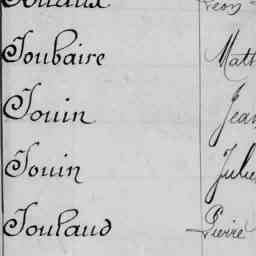 Léon
Joubaire Math
Jouin Jean
Jouin Julie
Joulaud Pierre